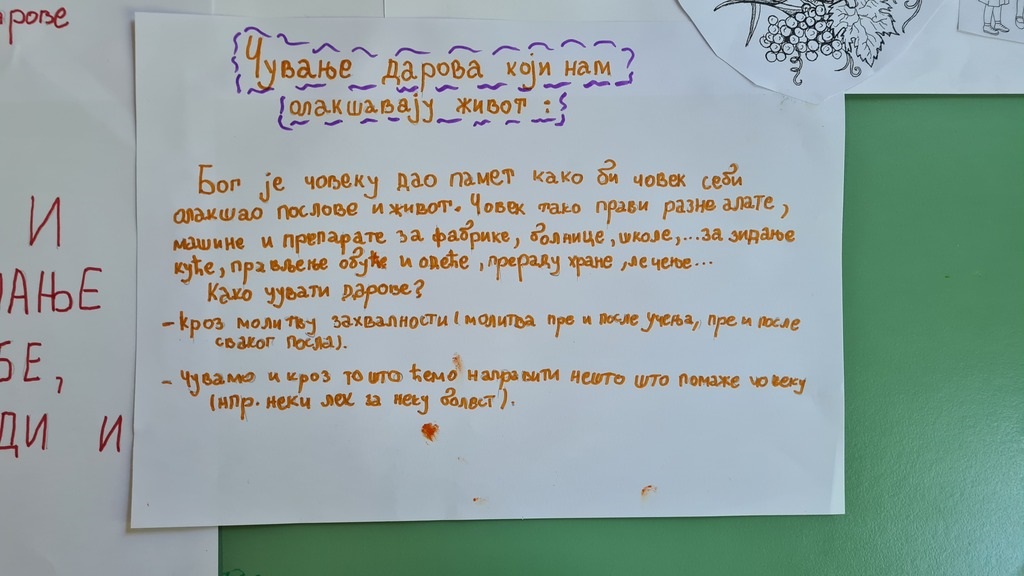 Чување дарова који нам
олакшавају живот :
Бог је човеку дао памет како би човек себи
олакшао послове и живот. Човек тако прави разне алате,
машине и препарате за фабрике, болнице, школе,... за зидање
куће, прављење обуће и одеће, прераду хране, лечење...
Како чувати дарове?
- кроз молитву захвалности (молитва пре и после учења, пре и после
сваког посла).
- Чувамо и кроз то што ћемо направити нешто што помаже човеку
(нпр. неки лек за неку болест).
И
АЊЕ
БЕ,
ДИ И